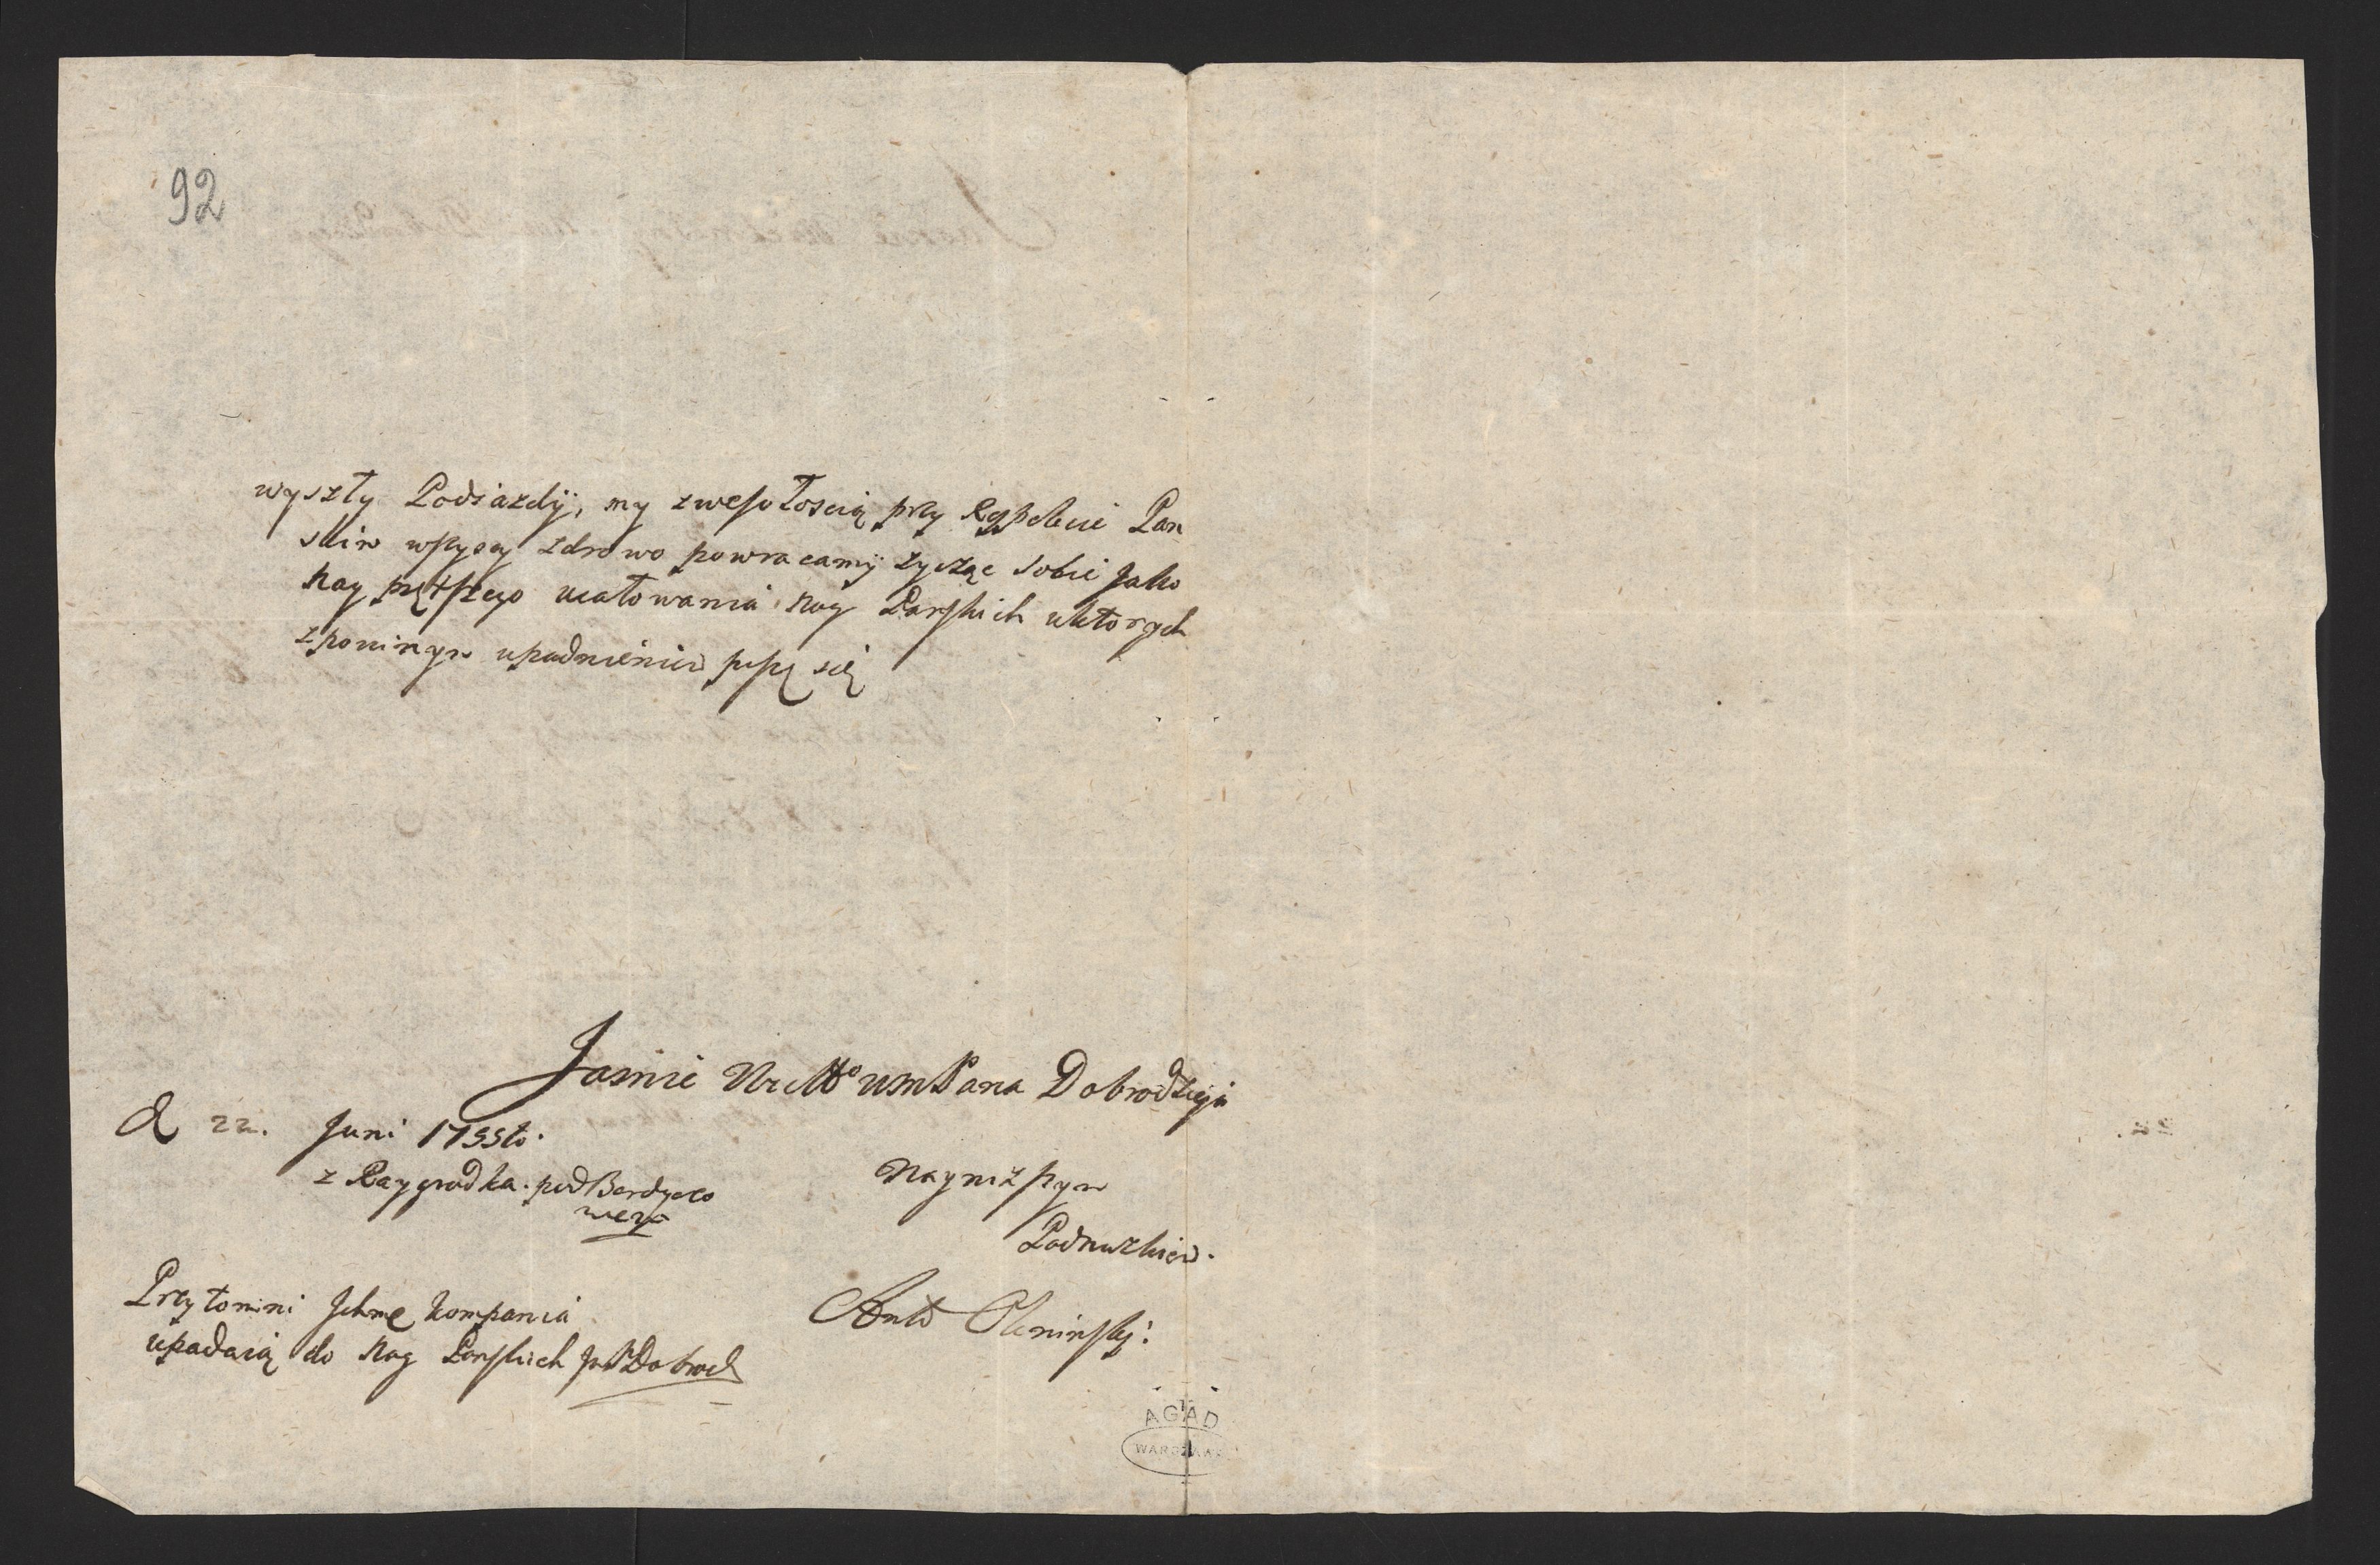 92
wyszły Podiazdÿ, my zwesołoscią przy Respekcie Pan
skim wszyscy zdrowo powracamÿ życząc sobie Jako
Nay prętszego ucałowania Nog Pańskich uktorych
zponinym upadnieniem piszę się
Jasnie Wiel&o WMPana Dobrodzieja
D 22. Juni 1755to.
z Raygrodka. pod Berdyczo
wem
Nayniższym
Podnużkiem.
Anto
Przytomni Ichmć kompania
upadaią do Nog Pańskich JWPDobrod
AGAD
WARSZAWA